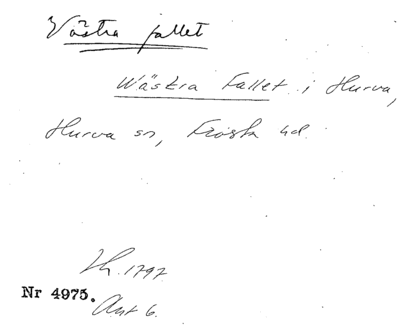 Västra fallet
Wästra Fallet i Hurva,
Hurva sn, Frosta hd.
Lh. 1797
Nr 4975.
Akt 6.